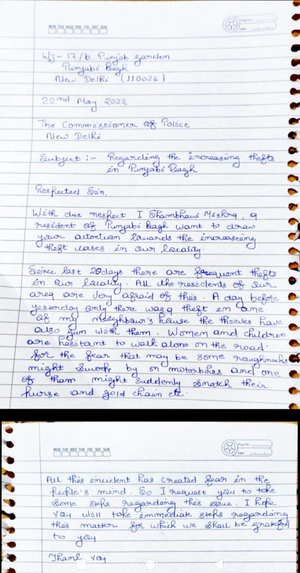 WZ - 17/b, Punjab garden
Punjabi Bagh
New Delhi (110026)
22nd May 2022
The Commissioner of Police
New Delhi
Subject :- Regarding the increasing thefts
in Punjabi Bagh
Respected Sir,
With due respect I Shambhavi Mishra, a
resident of Punjabi Bagh want to draw
your attention towards the increasing
theft cases in our locality
Since last 20days there are frequent thefts
in our locality. All the residents of our
area are very afraid of this. A day before
yesterday only there was theft in one
of my neighbour's house the thieves have
also gun with them. Women and children
are hesitant to walk alone on the road.
for the fear that may be some roughmale
might swoop by on motorbikes and one
of them might suddenly snatch their
purse and gold chain etc.
All this incident has created fear in the
people's mind. So I request you to take
some steps regarding this issue. I hope
you will take immediate steps regarding
this matter for which we shall be grateful
to you
Thank you